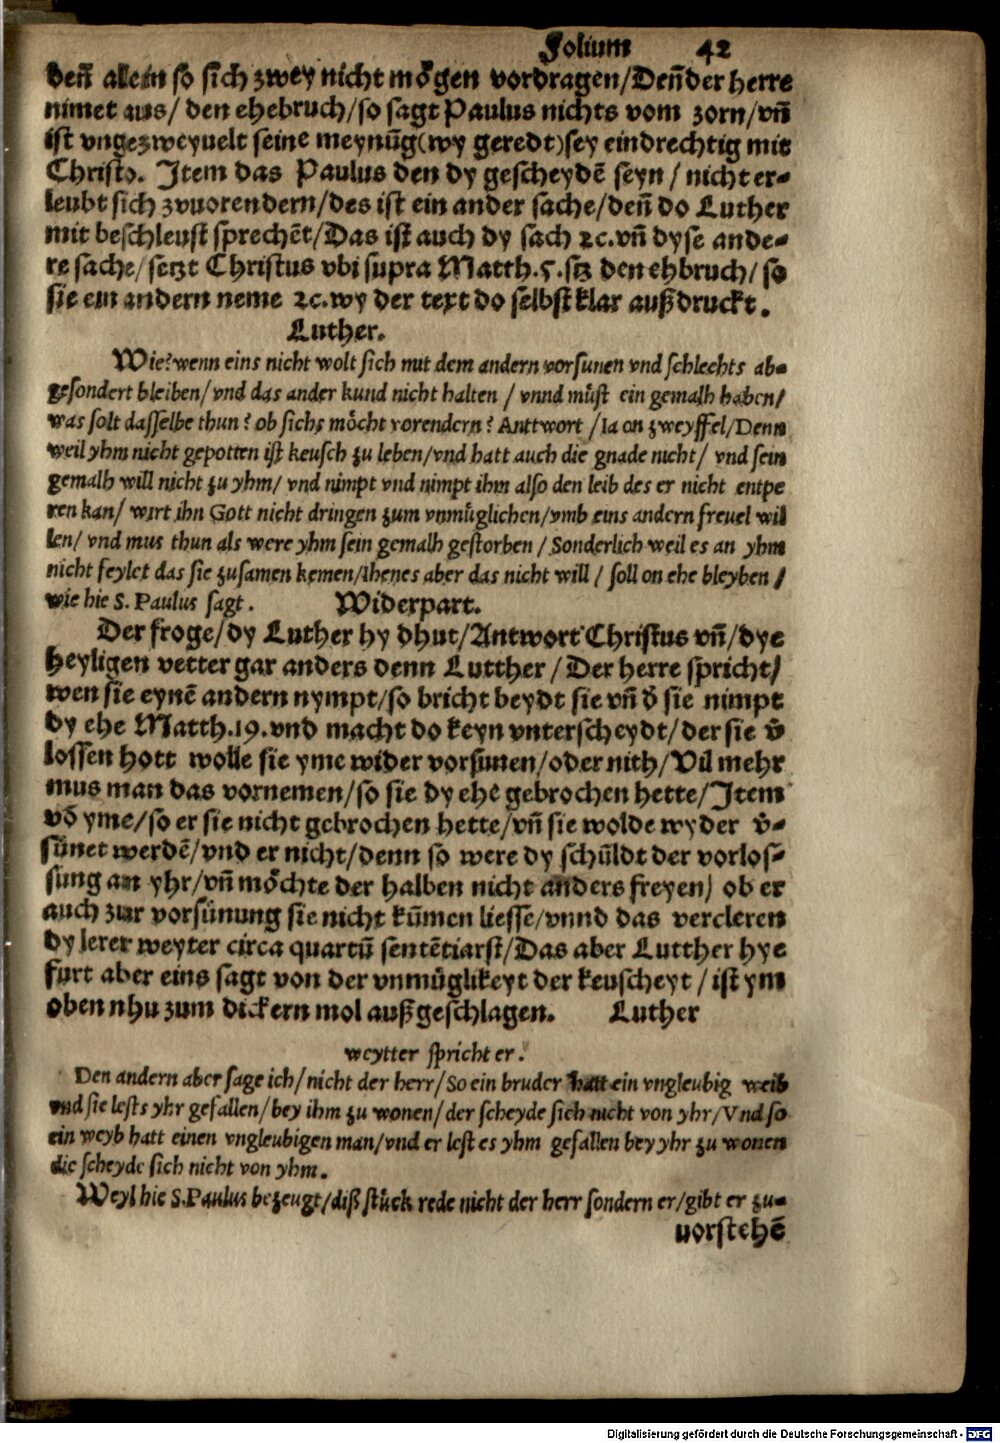 Folium 42
deñ allein so sich zwey nicht mögen vordragen/Deñ der herre
nimet aus/ den ehebruch/so sagt Paulus nichts vom zorn/vñ
ist vngezweyuelt seine meynũg(wy geredt)sey eindrechtig mit
Christo. Item das Paulus den dy gescheydẽ seyn / nicht er-
leubt sich zvuorendern/des ist ein ander sache/deñ do Luther
mit beschleust sprechẽt/Das ist auch dy sach ꝛc.vñ dyse ande-
re sache/setzt Christus vbi supra Matth.5.sẽ den ehbruch/ so
sie ein andern neme ꝛc.wy der text do selbst klar außdruckt.
Luther.
Wie?wenn eins nicht wolt sich mit dem andern vorsunen vnd schlechts ab-
gesondert bleiben/vnd das ander kund nicht halten / vnnd müst ein gemalh haben/
was solt dasselbe thun? ob sichs möcht vorendern? Anttwort /Ia on zweyffel/Denn
weil yhm nicht gepotten ist keusch zu leben/vnd hatt auch die gnade nicht/ vnd sein
gemalh will nicht zu yhm/ vnd nimpt vnd nimpt ihm also den leib des er nicht entpe
ren kan/ wirt ihn Gott nicht dringen zum vnmüglichen/vmb eins andern freuel wil
len/ vnd mus thun als were yhm sein gemalh gestorben / Sonderlich weil es an yhm
nicht feylet das sie zusamen kemen/Ihenes aber das nicht will / soll on ehe bleyben /
wie hie S. Paulus sagt. Widerpart.
Der froge/dy Luther hy dhut/Antwort Christus vñ/dye
heyligen vetter gar anders denn Lutther / Der herre spricht/
wen sie eynẽ andern nympt/so bricht beydt sie vñ d̾ sie nimpt
dy ehe Matth.19.vnd macht do keyn vnterscheydt/der sie v̾
lossen hott wolle sie yme wider vorsunen/oder nith/Vil mehr
mus man das vornemen/so sie dy ehe gebrochen hette/Item
võ yme/so er sie nicht gebrochen hette/vñ sie wolde wyder v̾-
sünet werdẽ/vnd er nicht/denn so were dy schüldt der vorlos-
sung an yhr/vñ möchte der halben nicht anders freyen/ ob er
auch zur vorsünung sie nicht kümen liesse/vnnd das vercleren
dy lerer weyter circa quartũ sentẽtiarũ/Das aber Lutther hye
furt aber eins sagt von der vnmüglikeyt der keuscheyt / ist ym
oben nhu zum dickern mol außgeschlagen. Luther
weytter spricht er.
Den andern aber sage ich/nicht der herr/So ein bruder hatt ein vngleubig weib
vnd sie lests yhr gefallen/bey ihm zu wonen/der scheyde sich nicht von yhr/Vnd so
ein weyb hatt einen vngleubigen man/vnd er lest es yhm gefallen bey yhr zu wonen
die scheyde sich nicht von yhm.
Weyl hie S.Paulus bezeugt/diß stück rede nicht der herr sondern er/gibt er zu-
vorstehẽ
Digitalisierung gefördert durch die Deutsche Forschungsgemeinschaft - DFG